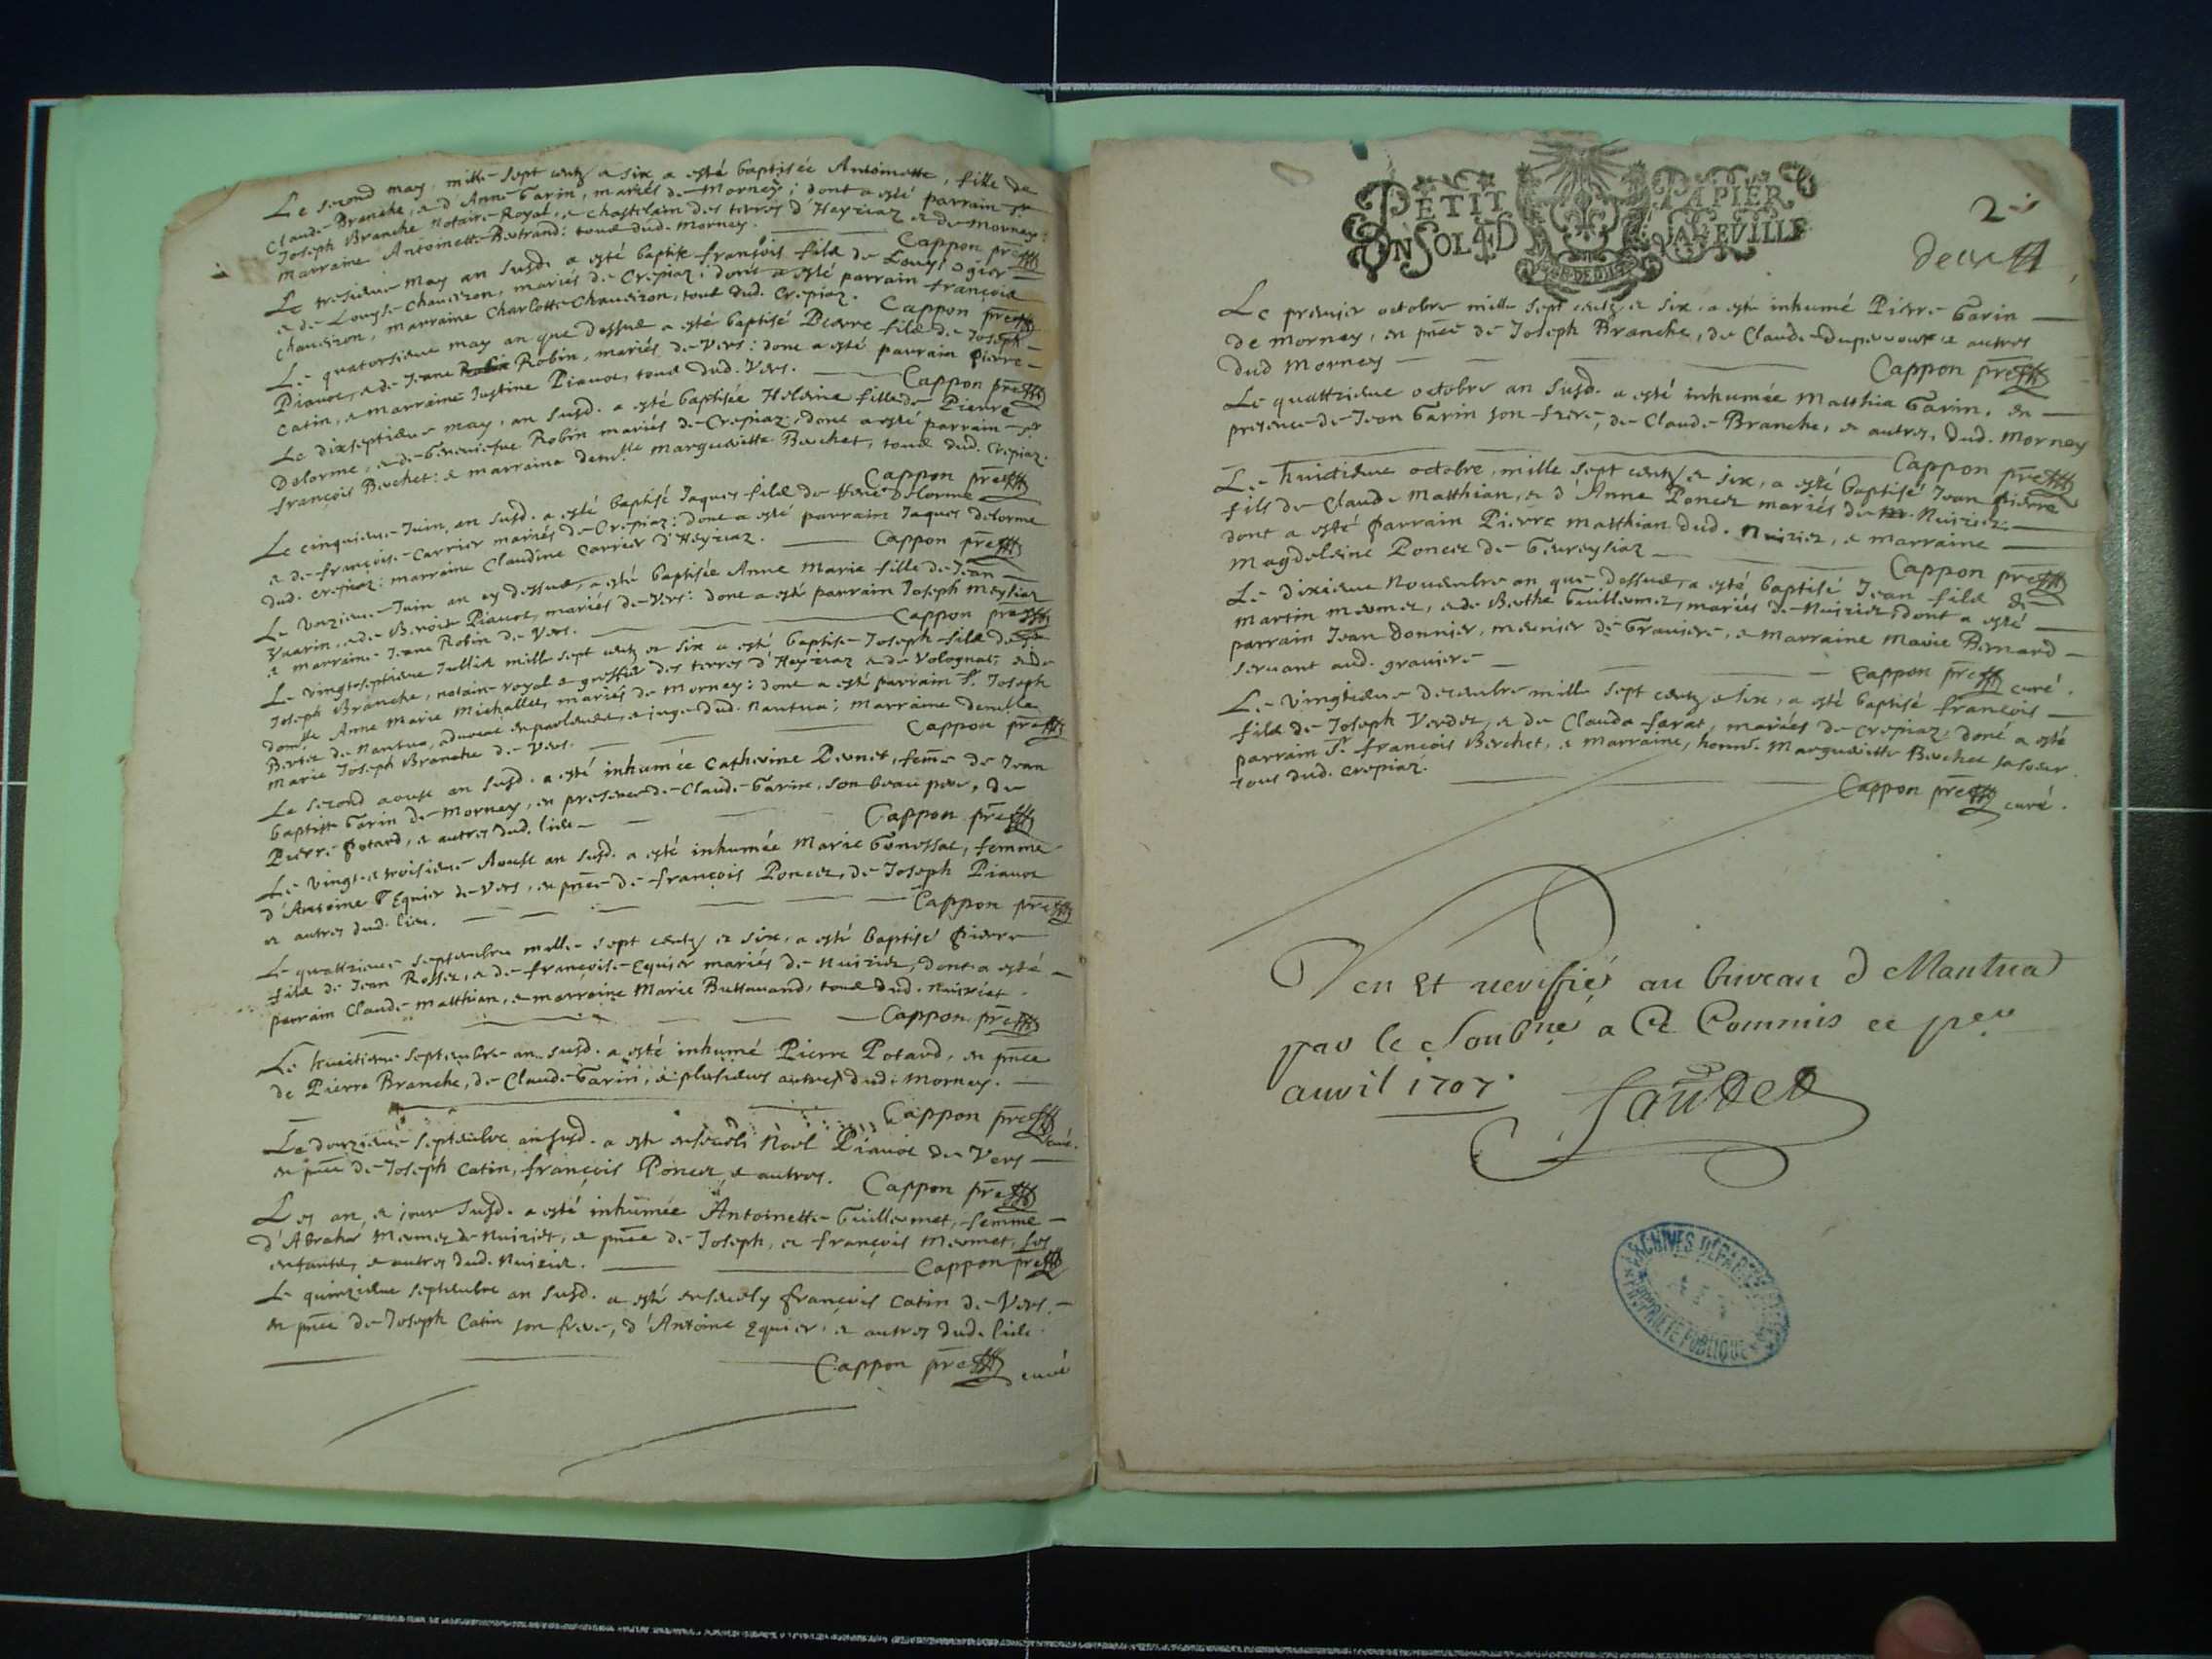 Le second may, mille sept centz & six a esté baptisée Antoinette, fille de
Claude Branche, & d'Anne Garin, mariés de Morney; dont a esté parrain Sr
Joseph Branche Notaire Royal, & chastelain des terres d'Heyriaz & de Morney:
Marraine Antoinette Bertrand: tous dud. Morney.
Cappon pre
Le tresieme May an susd. a esté baptisé françois fils de Louys Ogier
& de Louyse Chaversron, mariés de Crepiaz: dont a esté parrain françois
Chaversron, marraine Charlotte Chaversron, tous dud. Crepiaz.
Cappon pre
Le quatorsieme may an que dessus a esté baptisé Pierre fils de Joseph
Piavoz, & de Jeane Robin Robin, mariés de Vers: dont a esté parrain Pierre
Catin, & marraine Justine Piavoz, tous dud. Vers.
Cappon pre
Le dixseptieme may, an susd. a esté baptisée Heleine fille de Pierre
Delorme, & de Genevieve Robin mariés de Crepiaz, dont a esté parrain Sr
françois Berchet: & marraine demlle Marguerite Berchet, tous dud. Crepiaz.
Cappon pre
Le cinquieme Juin, an susd. a esté baptisé Jaques fils de Delorme
& de françoise Carrier mariés de Crepiaz: dont a esté parrain Jaques Delorme
dud. Crepiaz: marraine Claudine Carrier d'Heyriaz.
Cappon pre
Le unzieme Juin an cy dessus, a esté baptisée Anne Marie fille de Jean
Yvarin, & de Benoite Piavoz, mariés de Vers: dont a esté parrain Joseph Meyliaz
& marraine Jeane Robin de Vers.
Cappon pre
Le vingtseptieme Juillet mille sept centz & six a esté baptisé Joseph fils de Sr
Joseph Branche, notaire royal & greffier des terres d'Heyriaz & de Volognat; & de
domlle Anne Marie Michallet, mariés de Morney: dont a esté parrain Sr. Joseph
de Nantua, advocat en parlement, & juge dud. Nantua; Marraine demlle
Marie Joseph Branche de Vers.
Cappon pre
Le second aoust an susd. a esté inhumée Catherine Pernet, feme de Jean
Baptiste Garin de Morney, en presence de Claude Garin, son beau pere, de
Pierre Potard, & autres dud. lieu
Cappon pre
Le vingt & troisieme Aoust an susd. a esté inhumée Marie Genessat, femme
d'Antoine Equier de Vers, en pnce de françois Poncet, de Joseph Piavoz
& autres dud. lieu.
Cappon pre
Le quattrieme septembre mille sept centz & six, a esté baptisé Pierre
fils de Jean Rosset, & de françoise Equier mariés de Nuirier, dont a esté
parrain Claude Matthian, & marraine Marie Buttavand, tous dud. Nuiriet.
Cappon pre
Le huictieme septembre an susd. a esté inhumé Pierre Potard, en pnce
de Pierre Branche, de Claude Garin, & plusieurs autres dud. Morney.
Cappon pre curé.
Le douzieme septembre an susd. a esté enseveli Noel Piavoz de Vers
en pnce de Joseph Catin, françois Poncet, & autres.
Cappon pre
Les an, & jour susd. a esté inhumée Antoinette Guillermet, femme
d'Abraham Mermet de Nuiriet, en pnce de Joseph, & françois Mermet, ses
enfants, & autres dud. Nuiriet.
Cappon pre
Le quinzieme septembre an susd. a esté ensevely françois Catin de Vers,
en pnce de Joseph Catin son frere, d'Antoine Equier, & autres dud. lieu.
Cappon pre curé
PETIT PAPIER
UN SOL 4 D LA FEUILLE
2
deux
Le premier octobre mille sept centz & six, a esté inhumé Pierre Garin
de Morney, en pnce de Joseph Branche, de Claude & autres
dud Morney
Cappon pre
Le quattrieme octobre an susd. a esté inhumée Matthia Garin, en
presence de Jean Garin son frere, de Claude Branche, & autres, dud. Morney
Cappon pre
Le huictieme octobre, mille sept centz & six, a esté baptisé Jean Pierre
fils de Claude Matthian, & d'Anne Poncet mariés de Nuirier,
dont a esté Parrain Pierre Matthian dud. Nuirier, & marraine
Magdeleine Poncet de Gevreysiaz
Cappon pre
Le dixieme Novembre an que dessus, a esté baptisé Jean fils de
Martin Mermet, & de Berthe Guillermet, mariés de Nuirier, dont a esté
parrain Jean Donnier, meunier de Graviere, & marraine Marie Bernard
servant aud. graviere
Cappon pre curé.
Le vingtieme decembre mille sept centz & six, a esté baptisé françois
fils de Joseph Verdet, & de Clauda farat, mariés de Crepiaz, dont a esté
parrain Sr. françois Berchet, & marraine, honne. Marguerite Berchet sa soeur
tous dud. Crepiaz.
Cappon pre curé.
Veu Et veriffié au bureau de Nantua
par le Soubné a ce Commis ce per
avril 1707.
ARCHIVES DÉPARTEMENTALES
PROPRIÉTÉ PUBLIQUE